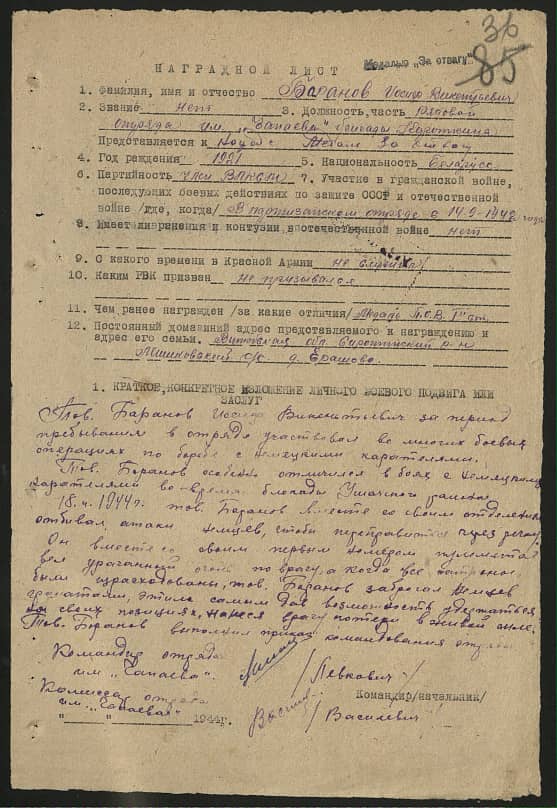 36
85
Медалью "За отвагу"
НАГРАДНОЙ ЛИСТ
1. Фамилия, имя и отчество Баранов Иосиф Викентьевич
2. Звание нет 3. Должность, часть Рядовой
отряда им. "Чапаева" бригады Короткина
Представляется к Медаль За Отвагу
4. Год раждения 1921 5. Национальность Беларусс
6. Партийность член ВЛКСМ 7. Участие в гражданской войне,
последующих боевых действиях по защите СССР и отечественной
войне /где, когда/ В партизанском отряде с 14.9-1942 года
8. Имеет ли ранения и контузии в отечественной войне нет
9. С какого времени в Красной Армии не служил
10. Каким РВК призван не призывался
11. Чем ранее награжден /за какие отличия/ Медаль П.О.В. I ст.
12. Постоянный домашний адрес представляемого к награждению и
адрес его семьи. Витебская обл. Сиротинский р-н
Мишневский с/с. д. Ерашово.
1. КРАТКОЕ, КОНКРЕТНОЕ ИЗЛОЖЕНИЕ ЛИЧНОГО БОЕВОГО ПОДВИГА ИЛИ
ЗАСЛУГ
Тов. Баранов Иосиф Викентьевич за период
пребывания в отряде участвовал во многих боевых
операциях по борьбе с немецкими карателями.
Тов. Баранов особенно отличился в боях с немецкими
карателями во время блокады Ушачского района
18.4.1944 г. тов. Баранов вместе со своим отделением
отбивал атаки немцев, чтоби переправится через реку,
Он вместе со своим первым номером пулемета
вел ураганный огонь по врагу, а когда все патроны
были израсходованы, тов. Баранов забросал немцев
гранатами, этим самым дав возможность удержаться
на своих позициях, нанеся врагу потери в живой силе.
Тов. Баранов выполнил приказ командования отряда.
Командир отряда
им "Чапаева" /Левкович/
Командир/начальник/
Комиссар отряда
им. "Чапаева" /Василевич/
"____"________1944г.